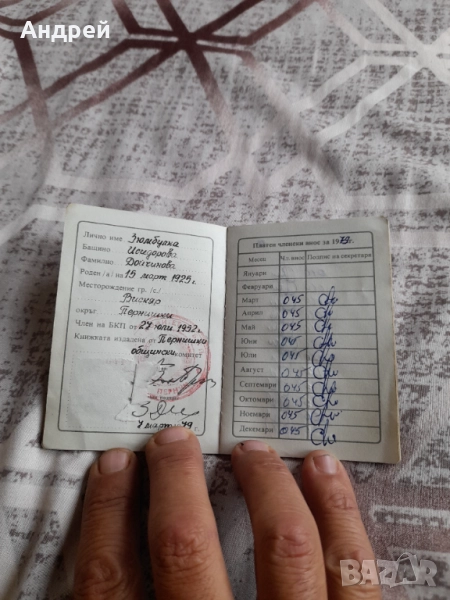 Андрей
Лично име Зюмбулка
Бащино Исидорова
Фамилно Дойчинова
Роден /а/ на 15 март 1925 г.
Месторождение гр. /с/
Вискяр
окръг Пернишки
Член на БКП от 27 юли 1952 г.
Книжката издадена от Пернишки
общински комитет
7 март 79 г.
Платен членски внос за 1979 г.
Месец Чл. внос Подпис на секретаря
Януари
Февруари
Март 045
Април 045
Май 045
Юни 045
Юли 045
Август 045
Септември 045
Октомври 045
Ноември 045
Декември 045
BAZAR